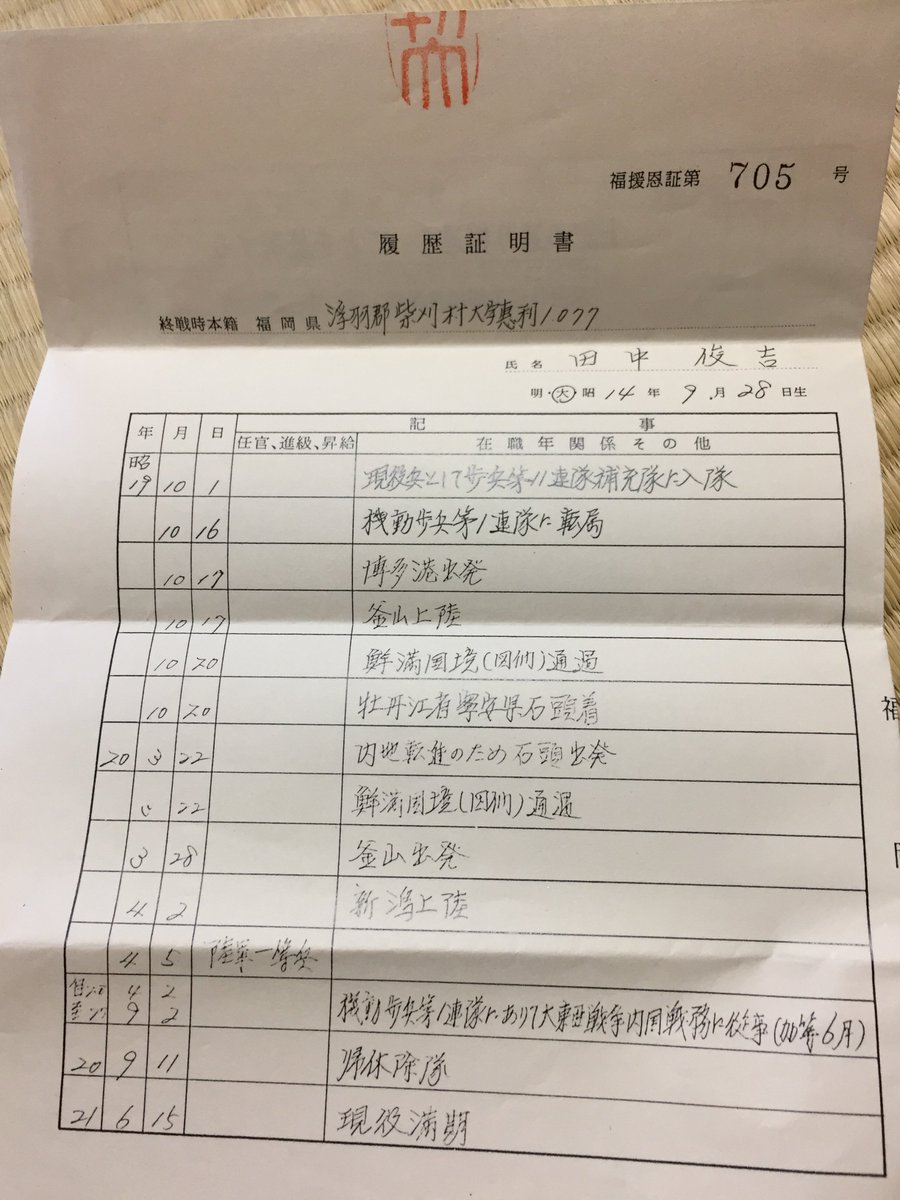 福援恩証第 705 号
履歴証明書
終戦時本籍 福岡県 浮羽郡柴刈村大字恵利1077
氏名 田中 俊吉
明・大・昭 14年 9月 28日生
年 月 日 記事
任官、進級、昇給 在職年関係その他
昭19 10 1 現役兵として歩兵第 連隊補充隊に入隊
10 16 機動歩兵第1連隊に転属
10 17 博多港出発
10 17 釜山上陸
10 20 鮮満国境(図們)通過
10 20 牡丹江省寧安県石頭着
20 3 22 内地転進のため石頭出発
22 鮮満国境(図們)通過
3 28 釜山出発
4 2 新潟上陸
4 5 陸軍一等兵
4 2
9 2 機動歩兵第1連隊にありて大東亜戦争内国戦務に従事(加算6月)
20 9 11 帰休除隊
21 6 15 現役満期
福